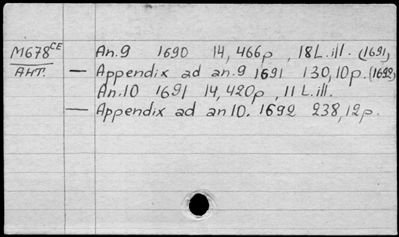 M678CE An.9 1690 14, 466p, 18L.ill. (1691)
AHT. — Appendix ad an.9 1691 130, 10p. (1692)
An.10 1691 14, 420p, 11 L.ill.
— Appendix ad an 10. 1692 238, 12p.